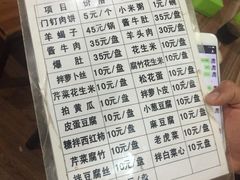 项目 价格 小米粥 1元/碗
门钉肉饼 5元/个 酱牛肉 35元/盘
羊蝎子 45元/锅 羊杂 30元/盘
酱牛肉 35元/盘 花生米 10元/盘
爆肚 35元/盘 腐竹花生米 10元/盘
拌萝卜丝 10元/盘 松花蛋 10元/盘
芹菜花生米 10元/盘 拌萝卜皮 10元/盘
拍黄瓜 10元/盘 小葱豆腐 10元/盘
皮蛋豆腐 10元/盘 麻豆腐 10元/盘
糖拌西红柿 10元/盘 老虎菜 10元/盘
芹菜腐竹 10元/盘 拌白菜心 10元/盘
拌豆腐丝 10元/盘